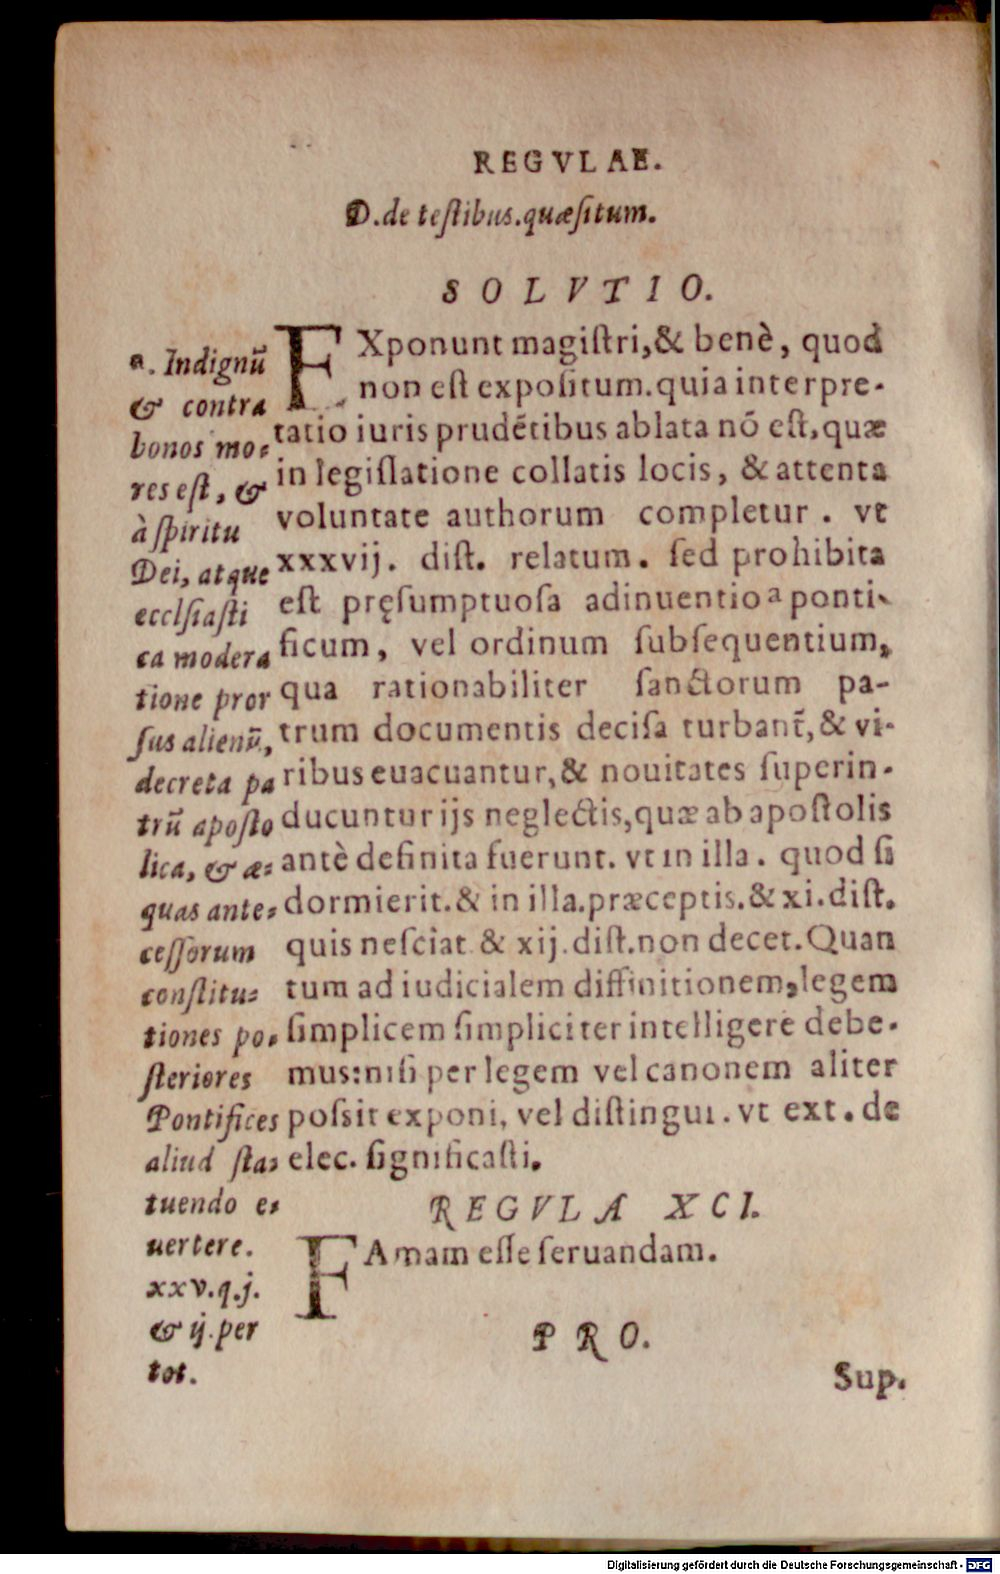 REGVLAE.
D.de teſtibus.quæſitum.
SOLVTIO.
EXponunt magiſtri,& benè, quod
non eſt expoſitum.quia interpre-
tatio iuris prudētibus ablata nō eſt,quæ
in legiſlatione collatis locis, & attenta
voluntate authorum completur . vt
xxxvij. diſt. relatum. ſed prohibita
eſt pręſumptuoſa adinuentio a ponti-
ficum, vel ordinum ſubſequentium,
qua rationabiliter ſanctorum pa-
trum documentis deciſa turbant̄,& vi-
ribus euacuantur,& nouitates ſuperin-
ducuntur ijs neglectis,quæ ab apoſtolis
antè definita fuerunt. vt in illa . quod ſi
dormierit.& in illa.præceptis.& xi.diſt.
quis neſciat & xij.diſt.non decet.Quan
tum ad iudicialem diffinitionem,legem
ſimplicem ſimpliciter intelligere debe-
mus:niſi per legem vel canonem aliter
poſsit exponi, vel diſtingui.vt ext.de
elec. ſignificaſti.
a. Indignū
& contra
bonos mo-
res eſt, &
à ſpiritu
Dei, atque
ecclſiaſti
ca modera
tione pror
ſus alienū,
decreta pa
trū apoſto
lica, & æ-
quas ante-
ceſſorum
conſtitu-
tiones po-
ſteriores
Pontifices
aliud ſta-
tuendo e-
uertere.
xxv.q.j.
& ij.per
tot.
REGVLA XCI.
FAmam eſſe ſeruandam.
PRO.
Sup.
Digitalisierung gefördert durch die Deutsche Forschungsgemeinschaft - DFG